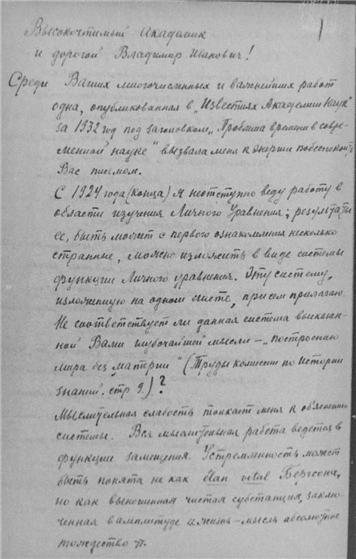 1
Высокочтимый Академик
и дорогой Владимир Иванович!
Среди Ваших многочисленных и важнейших работ
одна, опубликованная в „Известиях Академии Наук"
за 1932 год под заголовком „Проблема времени в совре-
менной науке" вызвала меня к энергии побеспокоить
Вас письмом.
С 1924 года (конца) я неотступно веду работу в
области изучения Личного Уравнения; результаты
ее, быть может с первого ознакомления несколько
странные, можно изложить в виде системы
функции Личного уравнения. Эту систему,
изложенную на одном листе, при сем прилагаю.
Не соответствует ли данная система высказан-
ной Вами глубочайшей мысли – „построению
мира без материи" (Труды комиссии по Истории
знаний. стр 9.)?
Мыслительная слабость толкает меня к объяснению
системы. Вся мыслительная работа ведется в
функции замещения. Устремленность может
быть понята не как élan vital Бергсона,
но как выношенная чистая субстанция, заклю-
ченная в амплитуде жизнь – мысль абсолютное
тождество